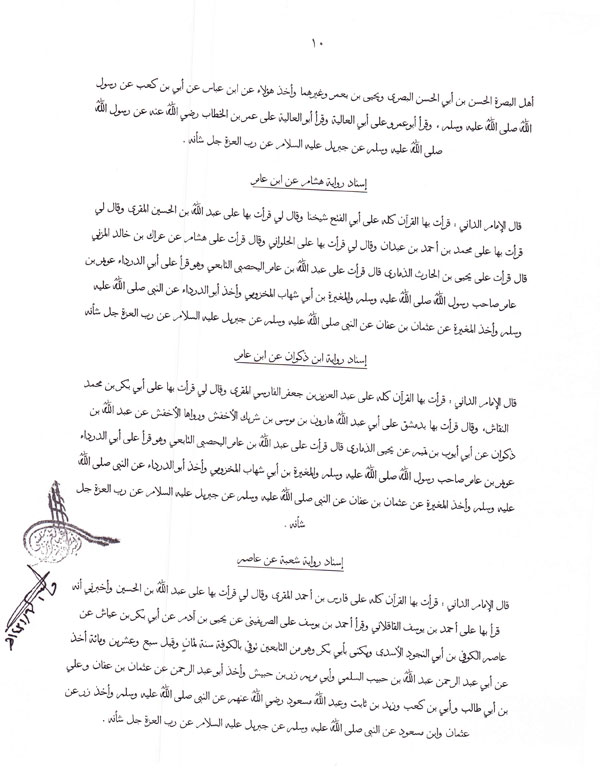 ١٠
أهل البصرة الحسن بن أبي الحسن البصري ويحيى بن يعمر وغيرهما وأخذ هؤلاء عن ابن عباس عن أبي بن كعب عن رسول
الله صلى الله عليه وسلم ، وقرأ أبو عمرو على أبي العالية وقرأ أبو العالية على عمر بن الخطاب رضي الله عنه عن رسول الله
صلى الله عليه وسلم عن جبريل عليه السلام عن رب العزة جل شأنه .
إسناد رواية هشام عن ابن عامر
قال الإمام الداني : قرأت بها القرآن كله على أبي الفتح شيخنا وقال لي قرأت بها على عبد الله بن الحسين المقرئ وقال لي
قرأت بها على محمد بن أحمد بن عبدان وقال لي قرأت بها على الحلواني وقال قرأت على هشام عن عراك بن خالد المزني
قال قرأت على يحيى بن الحارث الذماري قال قرأت على عبد الله بن عامر اليحصبي التابعي وهو قرأ على أبي الدرداء عويمر بن
عامر صاحب رسول الله صلى الله عليه وسلم والمغيرة بن أبي شهاب المخزومي وأخذ أبو الدرداء عن النبي صلى الله عليه
وسلم وأخذ المغيرة عن عثمان بن عفان عن النبي صلى الله عليه وسلم عن جبريل عليه السلام عن رب العزة جل شأنه
إسناد رواية ابن ذكوان عن ابن عامر
قال الإمام الداني : قرأت بها القرآن كله على عبد العزيز بن جعفر الفارسي المقرئ وقال لي قرأت بها على أبي بكر بن محمد
النقاش، وقال قرأت بها بدمشق على أبي عبد الله هارون بن موسى بن شريك الأخفش ورواها الأخفش عن عبد الله بن
ذكوان عن أبي أيوب بن تميم عن يحيى الذماري قال قرأت على عبد الله بن عامر اليحصبي التابعي وهو قرأ على أبي الدرداء
عويمر بن عامر صاحب رسول الله صلى الله عليه وسلم والمغيرة بن أبي شهاب المخزومي وأخذ أبو الدرداء عن النبي صلى الله
عليه وسلم وأخذ المغيرة عن عثمان بن عفان عن النبي صلى الله عليه وسلم عن جبريل عليه السلام عن رب العزة جل
شأنه .
إسناد رواية شعبة عن عاصم
قال الإمام الداني : قرأت بها القرآن كله على فارس بن أحمد المقرئ وقال لي قرأت بها على عبد الله بن الحسين وأخبرني أنه
قرأ بها على أحمد بن يوسف القافلاني وقرأ أحمد بن يوسف على الصريفيني عن يحيى بن آدم عن أبي بكر بن عياش عن
عاصم الكوفي بن أبي النجود الأسدي ويكنى بأبي بكر وهو من التابعين توفي بالكوفة سنة ثمان وقيل سبع وعشرين ومائة أخذ
عن أبي عبد الرحمن عبد الله بن حبيب السلمي وأبي مريم زر بن حبيش وأخذ أبو عبد الرحمن عن عثمان بن عفان وعلي
بن أبي طالب وأبي بن كعب وزيد بن ثابت وعبد الله مسعود رضي الله عنهم عن النبي صلى الله عليه وسلم وأخذ زر عن
عثمان وابن مسعود عن النبي صلى الله عليه وسلم عن جبريل عليه السلام عن رب العزة جل شأنه .